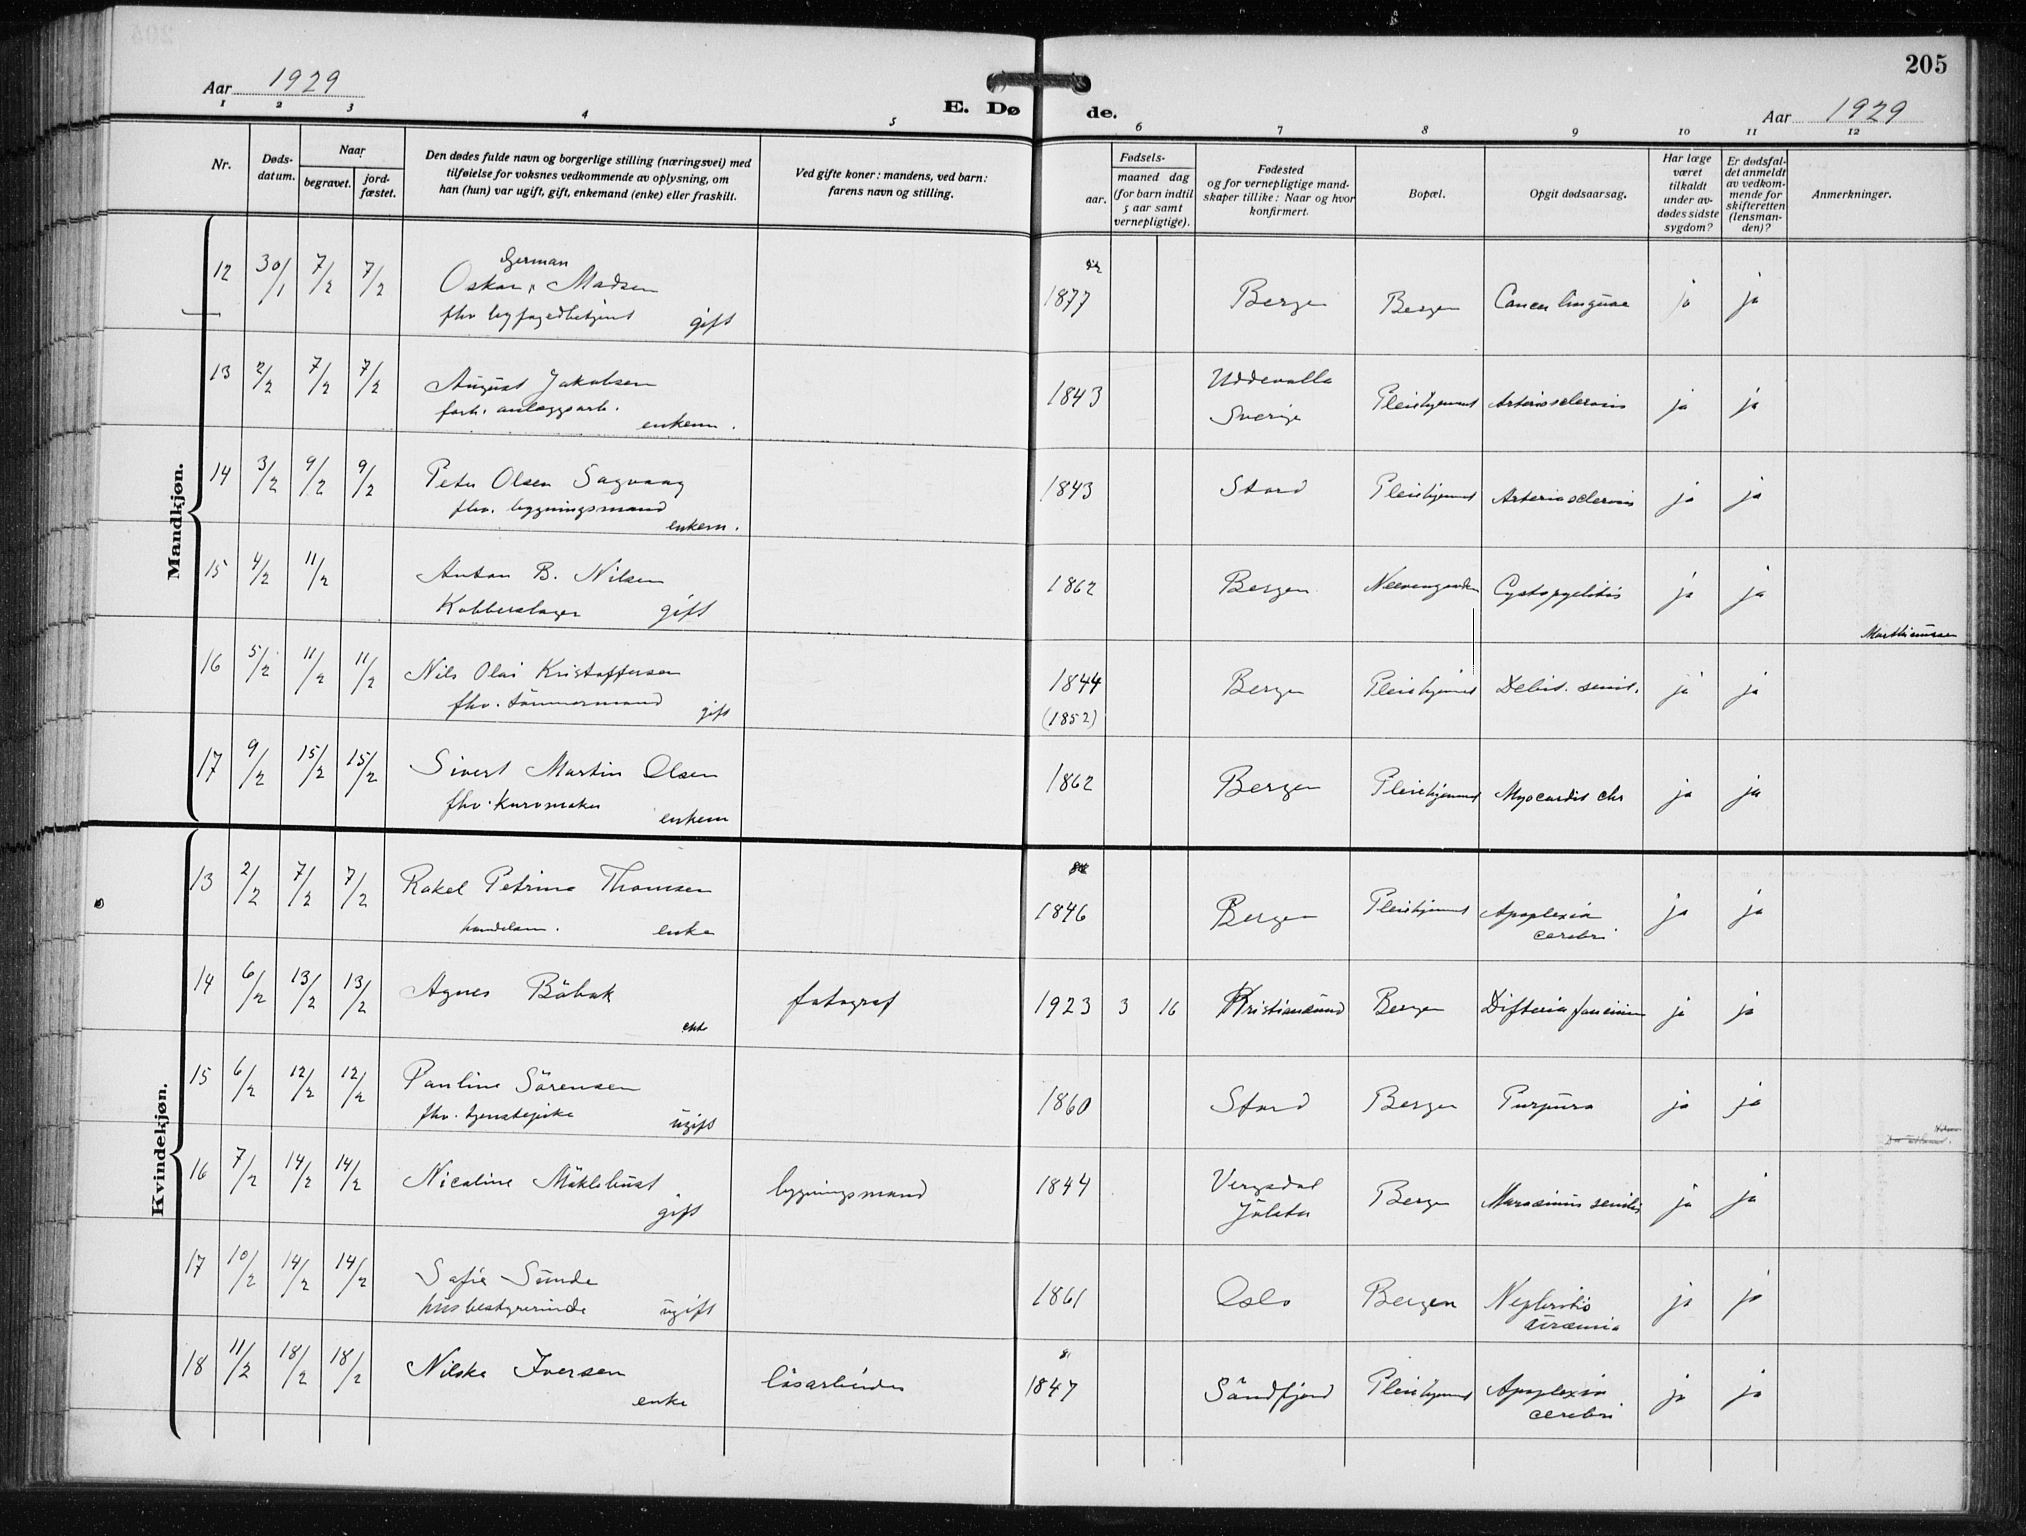 205
Aar 1929
E. Dø de.
Aar 1929
1 2 3 4 5 6 7 8 9 10 11 12
Nr.
Døds-
datum.
Naar
begravet.
jord-
fæstet.
Den dødes fulde navn og borgerlige stilling (næringsvei) med
tilføielse for voksnes vedkommende av oplysning, om
han (hun) var ugift, gift, enkemand (enke) eller fraskilt.
Ved gifte koner: mandens, ved barn:
farens navn og stilling.
Fødsels-
aar.
maaned dag
(for barn indtil
5 aar samt
vernepligtige).
Fødested
og for vernepligtige mand-
skaper tillike: Naar og hvor
konfirmert.
Bopæl.
Opgit dødsaarsag.
Har læge
været
tilkaldt
under av-
dødes sidste
sygdom?
Er dødsfal-
det anmeldt
av vedkom-
mende for
skifteretten
(lensman-
den)?
Anmerkninger.
Mandkjøn.
12 30/1 7/2 7/2 German
Oskar Madsen 1877 Bergen Bergen Cancer linguae ja ja
fhv byfogedbetjent gift
13 2/2 7/2 7/2 August Jakobsen 1843 Uddevalla Pleiehjemmet Arteriosclerosis ja ja
forh. anlægsarb. enkem. Sverige
14 3/2 9/2 9/2 Peter Olsen Sagvaag 1843 Stord Pleiehjemmet Arteriosclerosis ja ja
fhv. bygningsmand enkem.
15 4/2 11/2 Anton B. Nilsen 1862 Bergen Neevengaarden Cystopyelitis ja ja
Kobberslager gift
Marthinussen
16 5/2 11/2 11/2 Nils Olai Kristoffersen 1844 Bergen Pleiehjemmet Debil. senil. ja ja
fhv. tömmermand gift (1852)
17 9/2 15/2 15/2 Sivert Martin Olsen 1862 Bergen Pleiehjemmet Myocardit chr ja ja
fhv. kurvmaker enkem
Kvindekjøn.
13 2/2 7/2 7/2 Rakel Petrine Thomsen 1846 Bergen Pleiehjemmet Apoplexia ja ja
handelsm. enke cerebri
14 6/2 13/2 13/2 Agnes Böbak fotograf 1923 3 16 Kristiansund Bergen Difteria faucium ja ja
ekte
15 6/2 12/2 12/2 Pauline Sörensen 1860 Stord Bergen Purpura ja ja
fhv. tjenestepike ugift
16 7/2 14/2 14/2 Nicoline Mäklebust bygningsmand 1844 Bergen Marasmus senilis ja ja
gift Jölster
17 10/2 14/2 14/2 Sofie Sunde 1861 Oslo Bergen Nephritis ja ja
husbestyrerinde ugift uræmia
18 11/2 18/2 18/2 Nilska Iversen lösarbeider 1847 Söndfjord Pleiehjemmet Apoplexia ja ja
enke cerebri